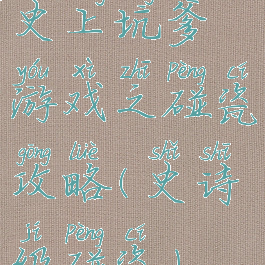 史上坑爹
yóu xì zhī pèng cí
游戏之碰瓷
gōng lüè shǐ shī
攻略(史诗
jí pèng cí
级碰瓷)